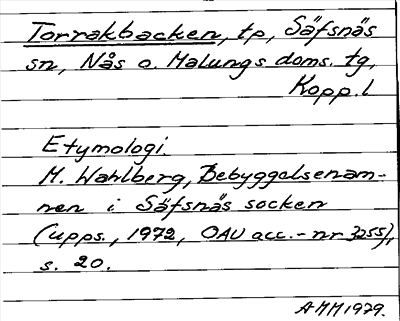 Torrakbacken, tp, Säfsnäs
sn, Nås o. Malungs doms. tg,
Kopp. l
Etymologi.
M. Wahlberg, Bebyggelsenam-
nen i Säfsnäs socken
(upps., 1972, OAU acc.-nr 3255),
s. 20.
AMM 1979.